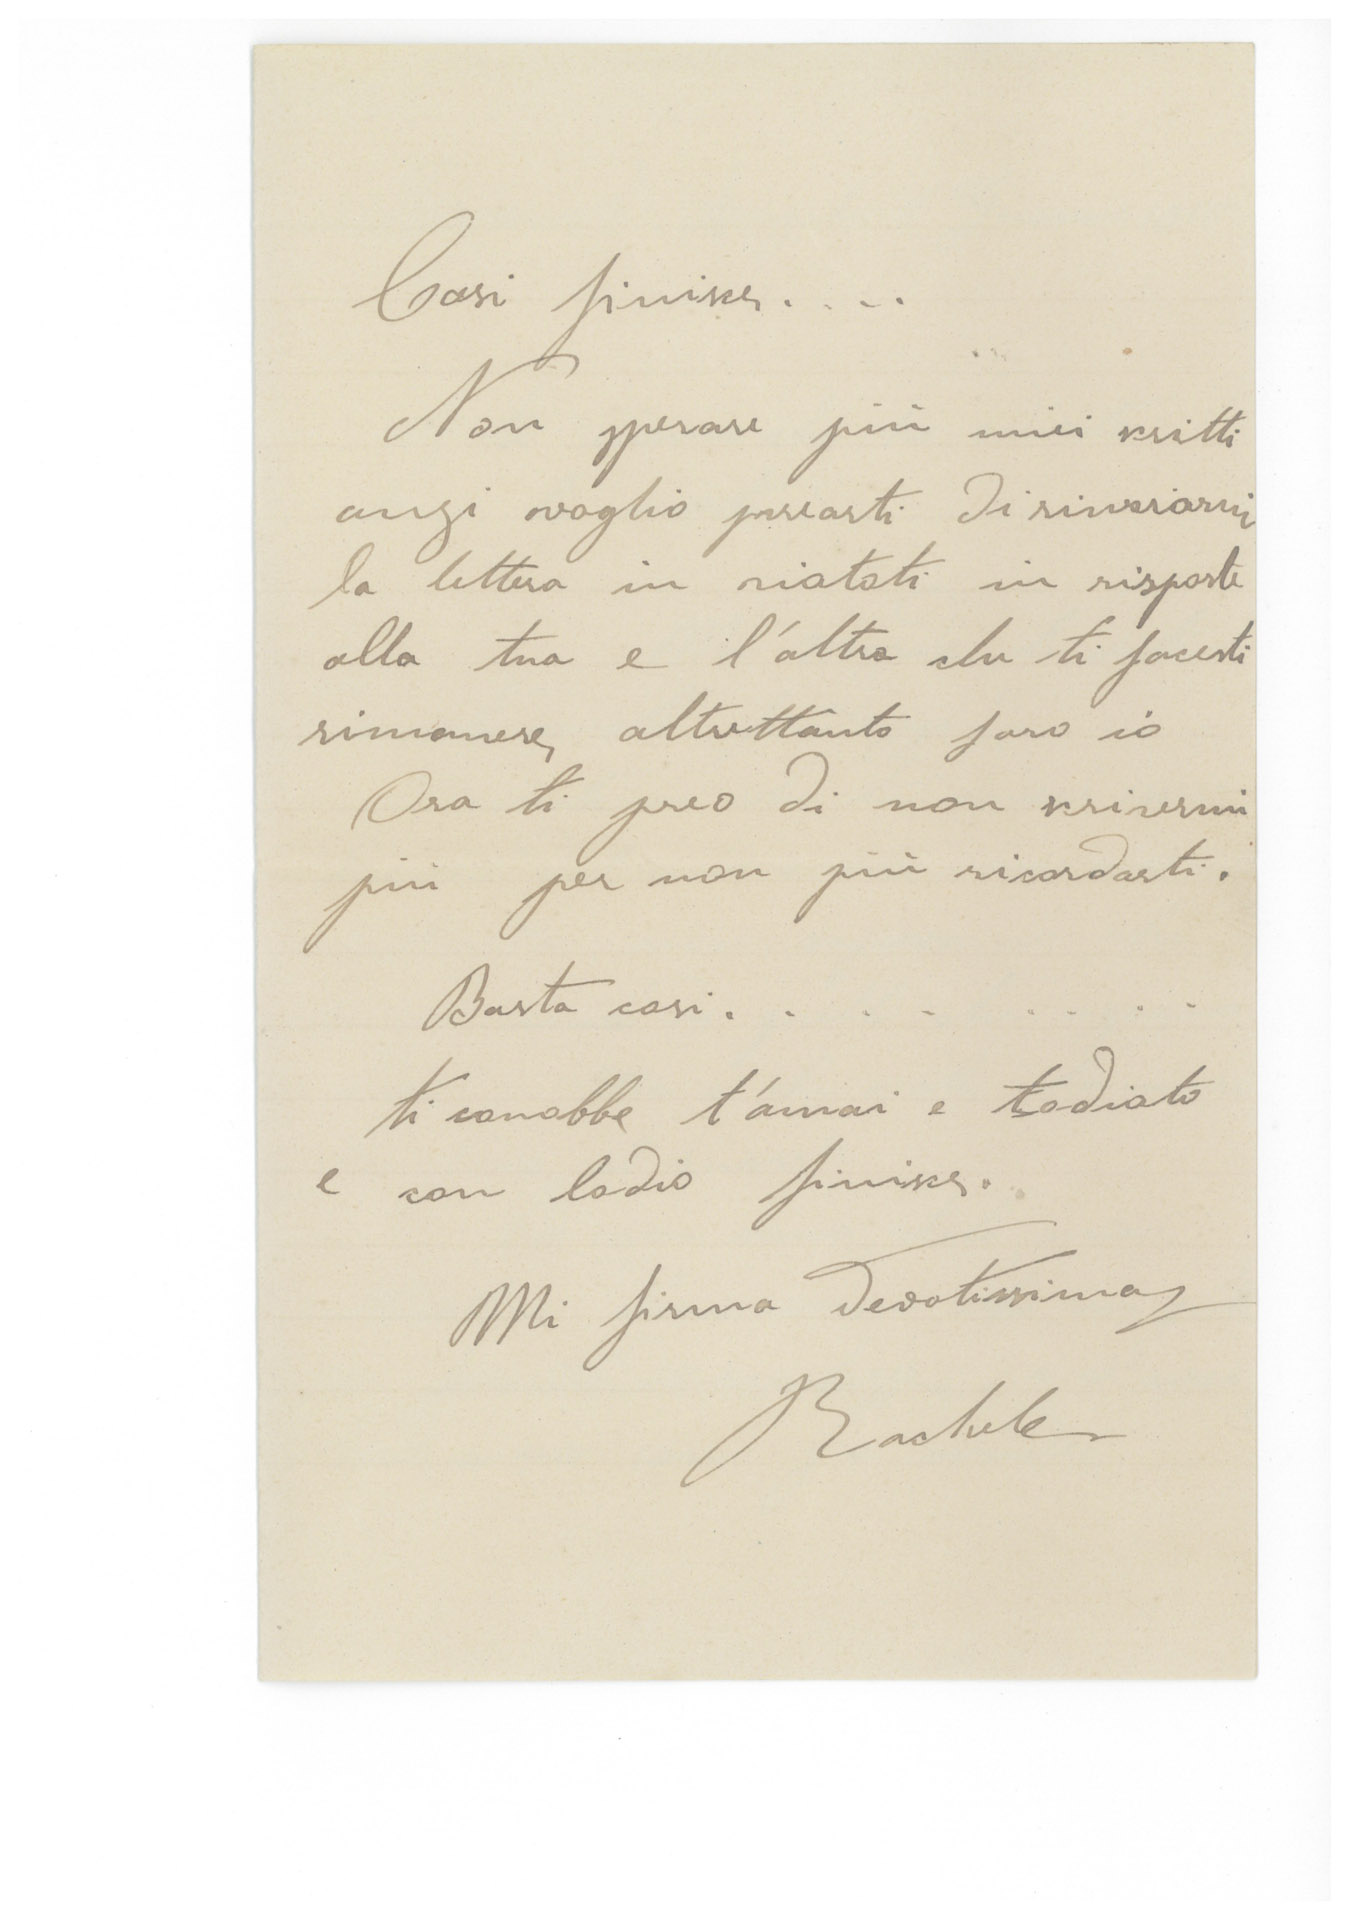 Cosi finisce. . . .
Non sperare più miei scritti
anzi voglio prearti di rinviarmi
la lettera in riatati in risposte
alla tua e l'altra che ti facesti
rimanere, altrettanto faro io
Ora ti preo di non scrivermi
più per non più ricordarti.
Basta cosi. . . . . . . .
ti conobbe t'amai e todiato
e con lodio finisce.
Mi firma devotissima
Rachele